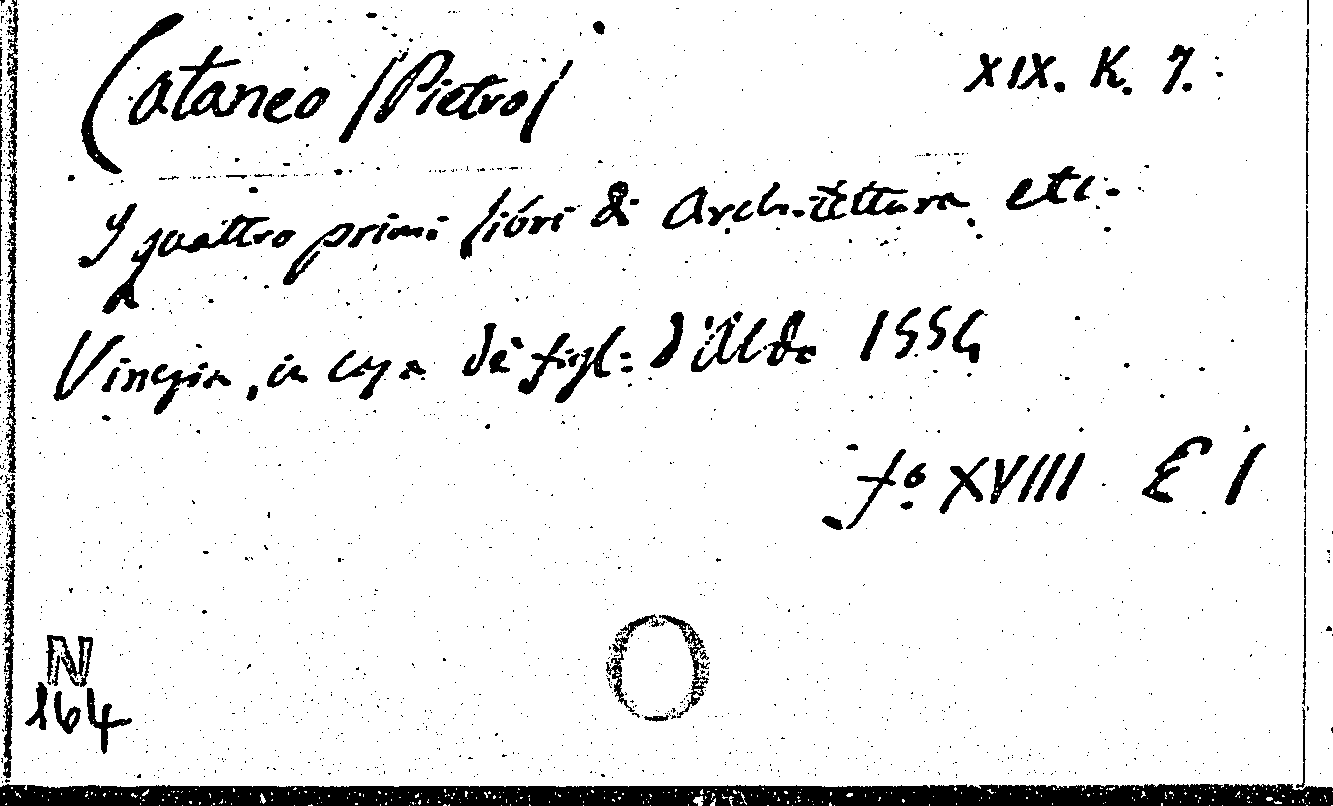 Cataneo /Pietro/ XIX. K. 7.
I quattro primi libri di Architettura etc.
Vinegia, in casa de' figl: d'Aldo 1554
fo XVIII E 1
N
164